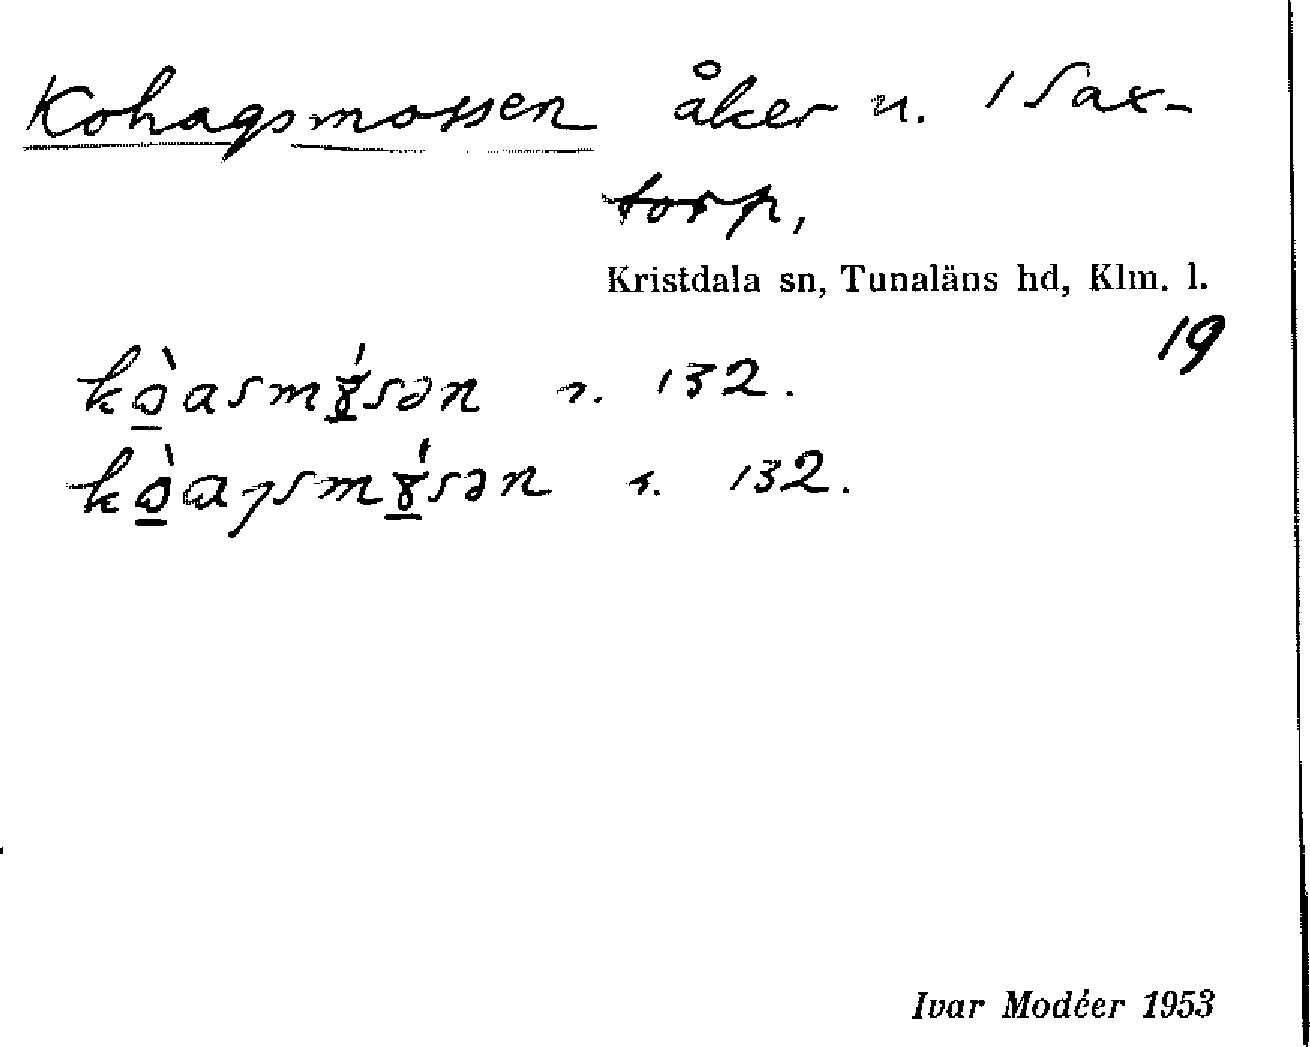 Kohagsmossen åker n. 1 Sax-
torp,
Kristdala sn, Tunaläns hd, Klm. l.
19
132.
132.
Ivar Modéer 1953